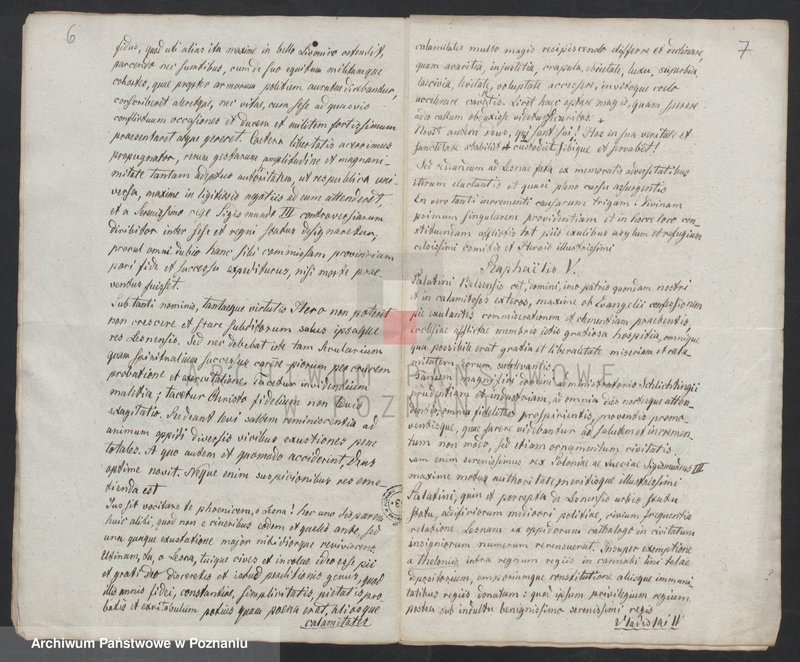 6
fidus, quod uti alias ita maxime in bello Livonico ostendit,
parcendo nec sumtibus, cum de suo equitum militumque
cohortes, quae propter armorum politiem auratae dicebantur,
conscriberet aleretque, nec vitae, cum sese ad quasvis
conflictuum occasiones et ducem et militem fortissimum
praesentaret atque gereret. Caetera libertatis acerrimus
propugnator, rerum gestarum amplitudine et magnani-
mitate tantam adeptus authoritatem, ut respublica uni-
versa, maxime in litigiosis negotiis ad eum attenderet
et a Serenissimo rege Sigismundo III controversiarum
diribitor inter sese et regni status designaretur,
procul omni dubio hanc sibi commissam provinciam
pari fide et successu expediturus, nisi morte prae
ventus fuisset.
Sub tanti nominis, tantaeque virtutis Heroe non poterit
non crescere et stare subditorum salus ipsaque
res Lesnensis. Sed nec debebat iste tam secularium
quam spiritualium successus carere piorum per crucem
probatione et exercitatione, tacetur invidentium
malitia; tacetur Christo fidelium non levis
exagitatio. Redeant levi saltem reminiscentia ad
animum oppidi diversis vicibus exustiones pene
totales. A quo autem et quomodo acciderint, Deus
optime novit. Neque enim suspicionibus res eme-
tienda est
Jussit vocitare te phoenicem, o Lesna! hoc uno dispar
huic aliti, quod non e cineribus eadem et qualis ante, sed
una quaque exustatione major nitidiorque revivisceres.
Utinam, tu, o Lesna, tuique cives et incolae ideo essent pii
et grati Deo disceretis et istud perditionis genus, quod
illis annis fidei, constantiae, simplicitatis, pietatis pro
batio et excitabulum potius quam poena erat, aliosque
calamitates
7
calamitates multo magis resipiscendo differre et declinare,
quam avaritia, injustitia, crapula, ebrietate, luxu, superbia,
lascivia, levitate, voluptate accersere, invitoque coelo
accelerare
Novit autem Deus, qui sunt sui! Hos in sua veritate et
sanctitate stabiliat et custodiat sibique et probabit!
Sed redeamus ad Lesnae fata ex memoratis adversitatibus
iterum eluctantis et quasi pleno cursu assurgentis
En vero tanti incrementi causarum trigam! Divinam
primum singularem providentiam et in hocce loco con
stituendam afflictis tot piis exulibus asylum et refugium
celsissimi comitis et Herois illustrissimi
Raphaëlis V.
Palatini Belsensis cet. domini, imo patris quondam nostri
et in calamitosos exteros, maxime ob Evangelii confessionem
pie exulantes commiserationem et clementiam praebentis,
ecclesiae afflictae membris istis gratiosa hospitia, omnique
qua possibile erat gratia et liberalitate miseriam et cala
mitatem eorum sublevantis.
Schlichtingii
prudentiam et industriam, ad omnia dies noctesque atten-
dentis, omnia fideliter prospicientis, moventis promo-
ventisque, quae facere videbantur ad salutem et incremen-
tum non modo, sed etiam ornamentum civitatis.
Jam enim serenissimus rex Poloniae ac Sueciae Sigismundus III
maxime motus authoritate meritisque illustrissimi
Palatini, quin et percepta de Lesnensis urbis statu
situ, aedificiorum mediocri politiae, civium frequentia
relatione Lesnam ex oppidorum cathalogo in civitatum
insigniorum numerum recensuerat. Insuper exemptione
a theloniis intra regnum regiis in cannabi lini telae
depositorium, emporiumque constitutione aliisque immuni
tatibus regiis donatam: quod ipsum privilegium regium
postea sub indultu benignissimo serenissimi regis
Vladislai IV
ARCHIWUM PAŃSTWOWE
W POZNANIU
Archiwum Państwowe w Poznaniu